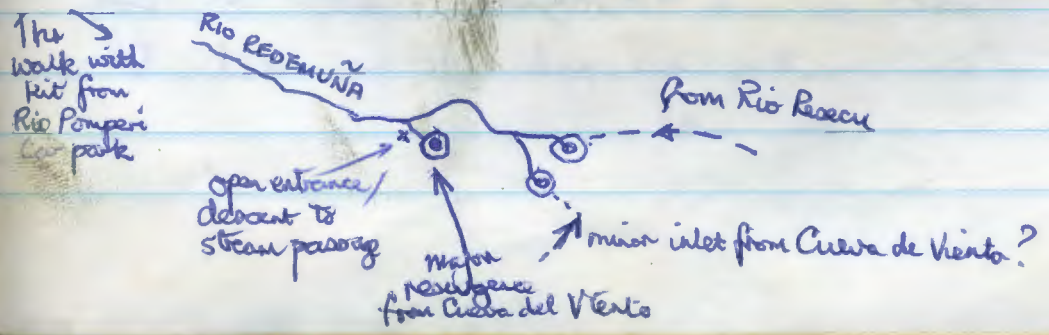 1 hr
walk with
kit from
Rio Pomperi
Car park
RIO REDEMUÑA
from Rio Resecu
x
open entrance/
descent to
stream passage
major
resurgence
from Cueva del Viento
minor inlet from Cueva de Viento?